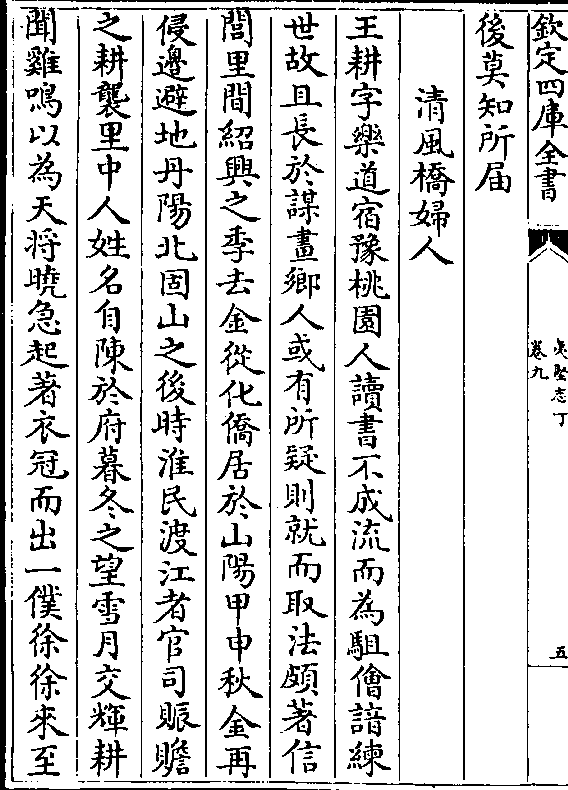 欽定四庫全書
夷堅志丁
卷九
五
後莫知所届
清風橋婦人
王耕字樂道宿豫桃園人讀書不成流而為駔儈諳練
世故且長於謀畫鄉人或有所疑則就而取法頗著信
閭里間紹興之季去金從化僑居於山陽甲申秋金再
侵邊避地丹陽北固山之後時淮民渡江者官司賑贍
之耕襲里中人姓名自陳於府暮冬之望雪月交輝耕
聞雞鳴以為天将曉急起著衣冠而出一僕徐徐來至